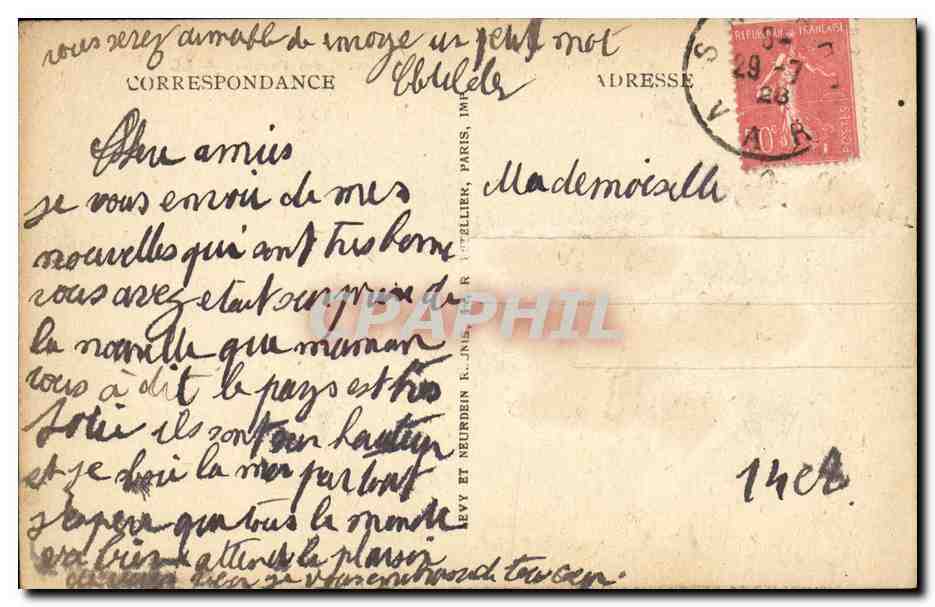 vous serez aimable de envoye un petit mot
Clotilde
CORRESPONDANCE
ADRESSE
Cher amies
je vous envoi de mes
nouvelles qui sont tres bonne
vous avez etait surprise de
la nouvelle que maman
vous à dit le pays est très
Jolie ils sont sur hauteur
et je boie la mer partout
j'espere que tous le monde
va bien attend le plaisir
je vous embrasse de tou cœur.
LEVY ET NEURDEIN REUNIS, 44, R LETELLIER, PARIS, IMP
Mademoiselle
14 et
REPUBLIQUE FRANÇAISE
POSTES
29 -7
28
VAR
CPAPHIL